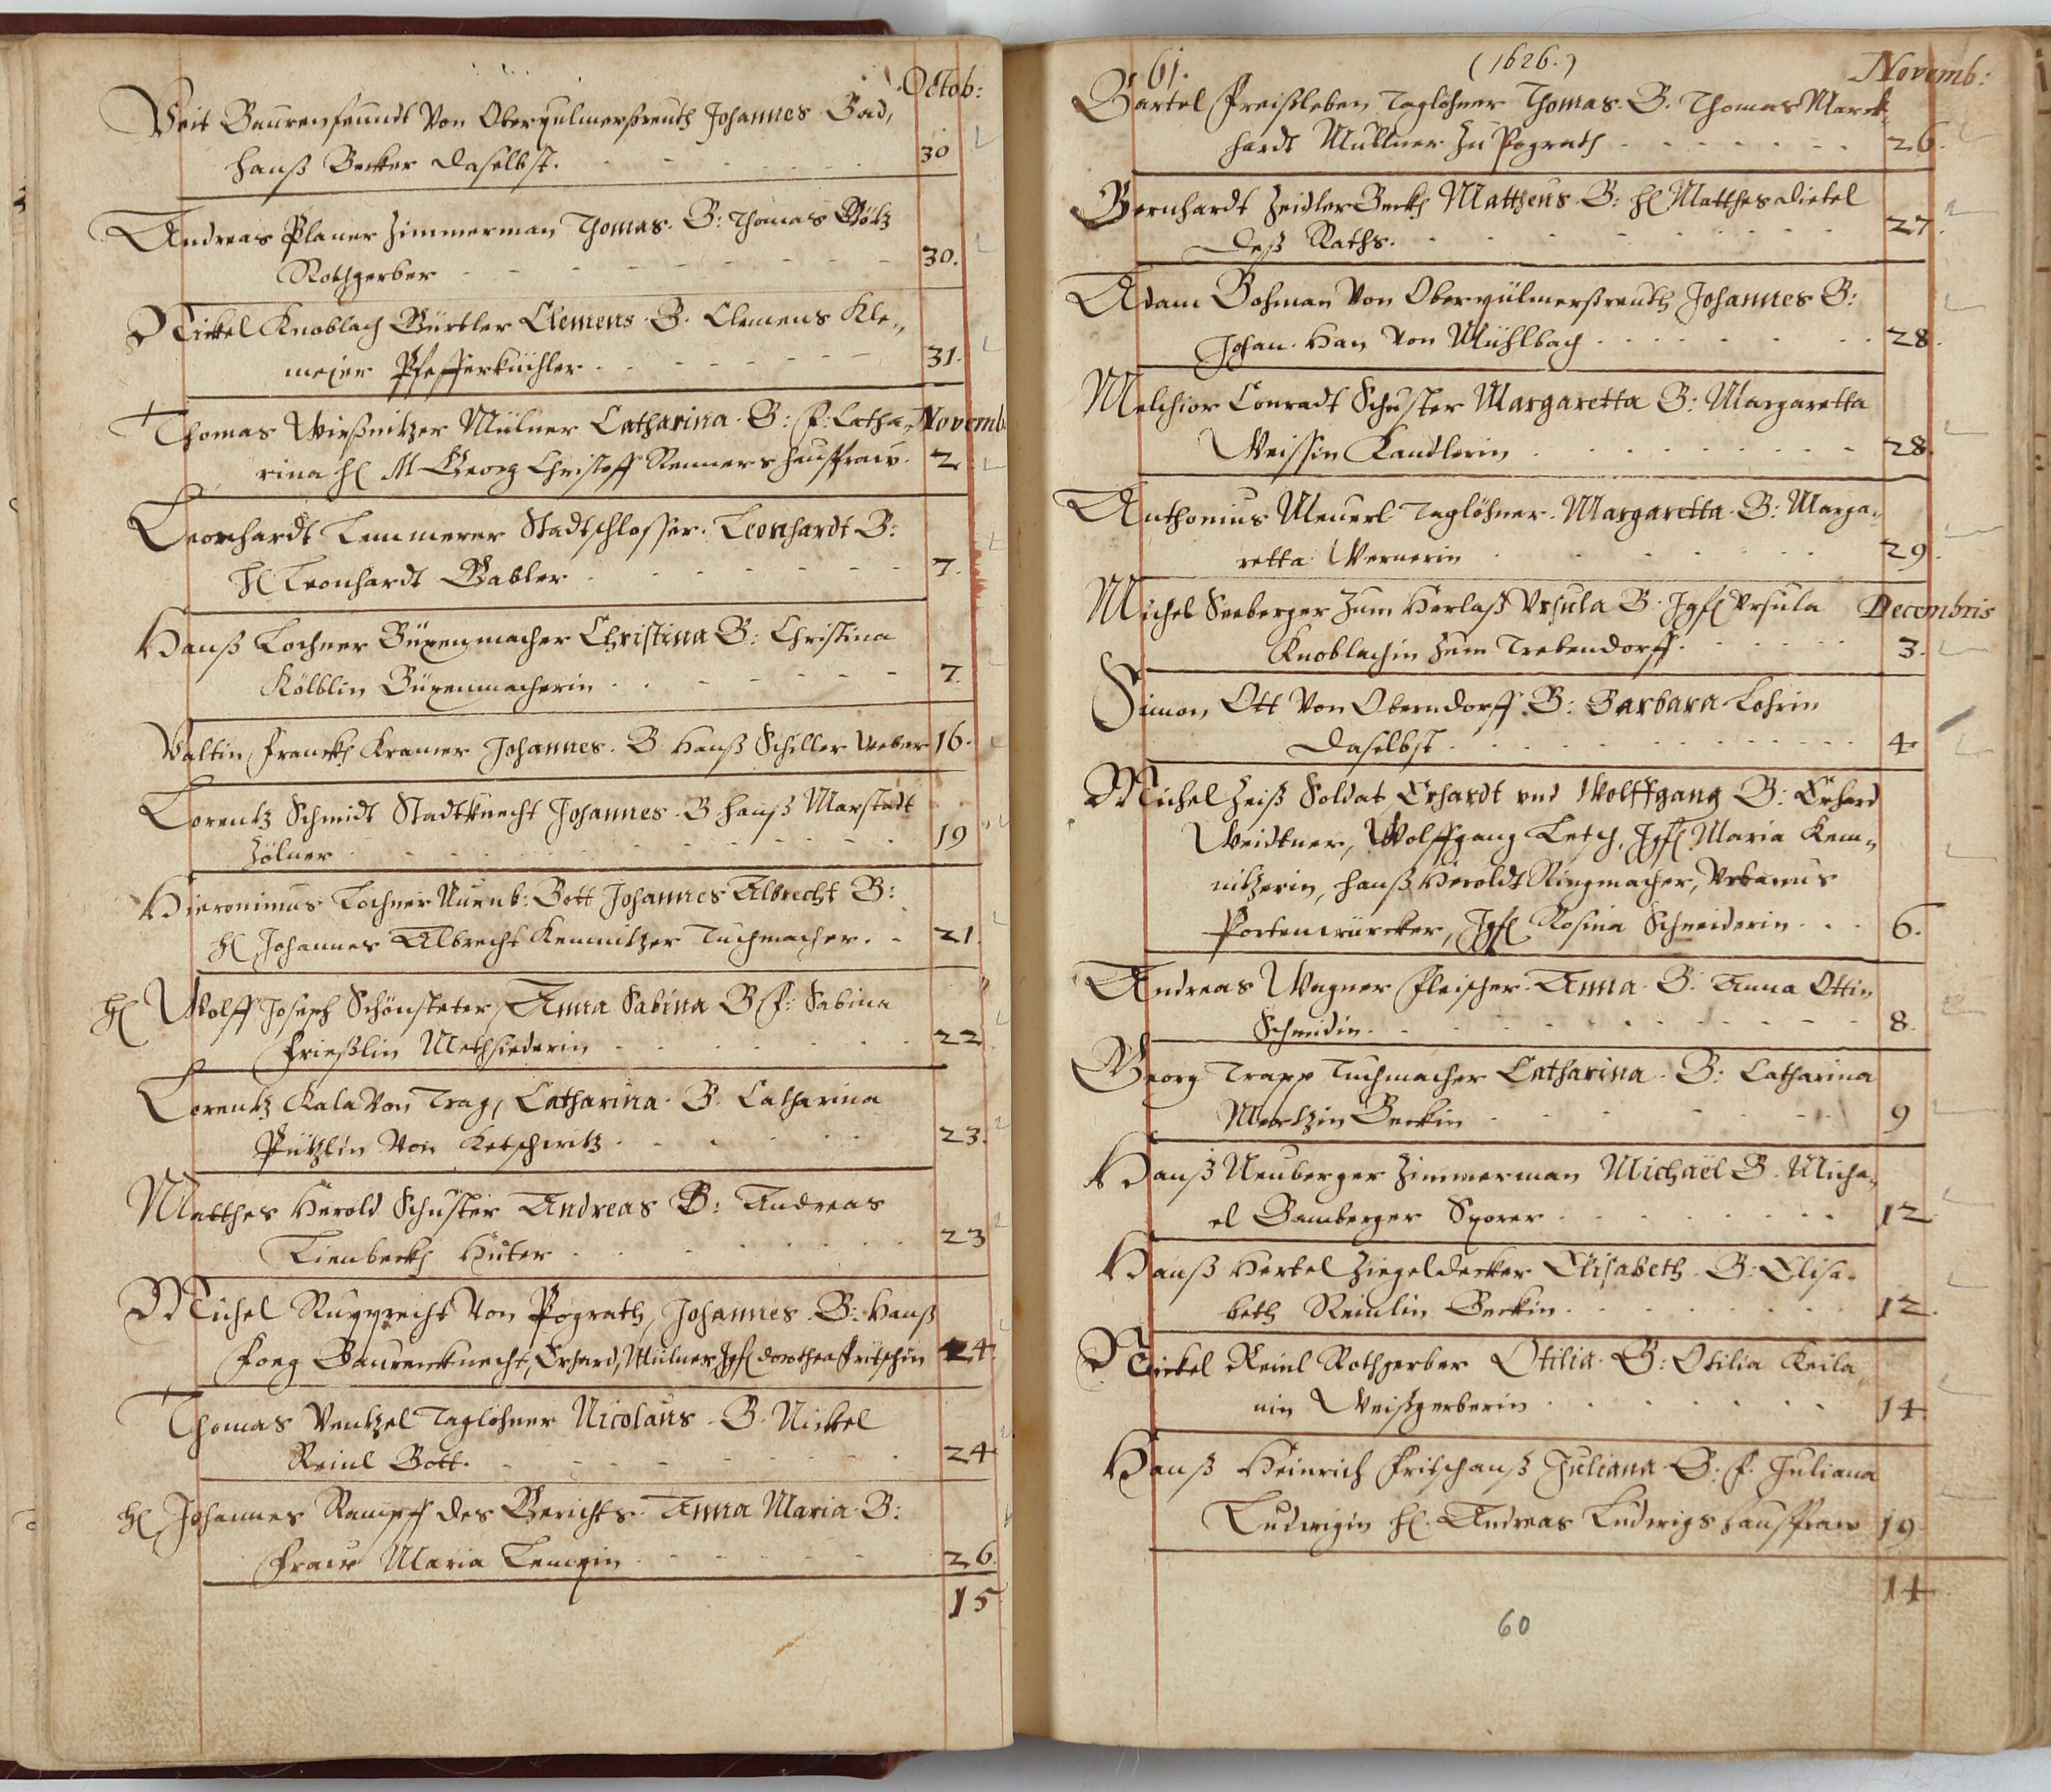 Octob:
Veit Baurenfeundt von Oberpulmerßreuth Johannes Bad,
Hanß Becker daselbst. 30
Andreas Planer Zimmerman Thomas. B: Thomas Götz
Rothgerber 30.
Nickel Knoblach Gürtler Clemens. B. Clemens Kle-
meier Pfefferküchler 31.
Thomas Wießnitzer Müllner Catharina. B: F. Catha- Novemb.
rina H M Georg Christoff Renners Haußfraw. 2
Leonhardt Lemmerer Stadtschlosser. Leonhardt B:
H Leonhardt Gabler 7.
Hanß Lochner Büxenmacher Christina B: Christina
Kölblin Büxenmacherin 7.
Valtin Franckh Kramer Johannes. B Hanß Schiller Weber 16.
Lorentz Schmidt Stadtknecht Johannes. B Hanß Marstadt
Zölner 19
Hieronimus Lochner Nürnb: Bott Johannes Albrecht B:
H Johannes Albrecht Kemnitzer Tuchmacher. 21.
H Wolff Joseph Schönsteter, Anna Sabina B F: Sabina
Frießlin Methsiederin 22
Lorentz Kala von Trag, Catharina. B. Catharina
Pützlin von Ketschwitz 23.
Matthes Herold Schuster Andreas B: Andreas
Lienbeckh Huter 23
Michel Rupprecht von Pograth, Johannes. B: Hanß
Foeg Baurenknecht, Erhard, Mülner, Jgf dorothea Fritschin 24.
Thomas Wentzel Taglöhner Nicolaus. B. Nickel
Reinl Bott. 24
H Johannes Rampf des Gerichts. Anna Maria. B:
Fraw Maria Lempin 26.
15
61. (1626.) Novemb:
Bartel Preißleben Taglöhner Thomas. B. Thomas Marck-
hardt Müllner zu Pograth 26.
Bernhardt Zeidler Beckh Mattheus. B: H Matthes Dietel
deß Raths. 27.
Adam Bohman von Oberpülmerßreuth Johannes B:
Johan. Han von Mühlbach 28.
Melchior Conradt Schuster Margaretta B: Margaretta
Weissin Kandlerin 28.
Anthonius Meuerl Taglöhner. Margaretta. B: Marga-
retta Wernerin 29.
Michel Seeberger zum Herlaß Ursula B. Jgf Ursula Decembris
Knoblachin zum Trebendorff. 3.
Simon Ott von Oberndorff. B: Barbara Lohrin
daselbst 4
Michel Zeiß Soldat Erhardt und Wolffgang B: Erhard
Weidtner, Wolffgang Letsch, Jgf Maria Kem-
nitzerin, Hanß Heroldt Ringmacher, Urbanus
Portenwürcker, Jgf Rosina Schneiderin 6.
Andreas Wagner Fleischer. Anna. B. Anna Ottin
Schmidin 8.
Georg Trapp Tuchmacher Catharina. B: Catharina
Mertzin Beckin 9
Hanß Neuberger Zimmerman Michaël B. Micha-
el Bamberger Sporer 12
Hanß Hertel Ziegeldecker Elisabeth. B: Elisa-
beth Reinlin Beckin 12.
Nickel Reinl Rothgerber Otilia. B: Otilia Keila
nin Weißgerberin 14.
Hanß Heinrich Fritschanß Juliana B: F. Juliana
Ludwigin H. Andreas Ludwigs Haußfraw 19
14
60